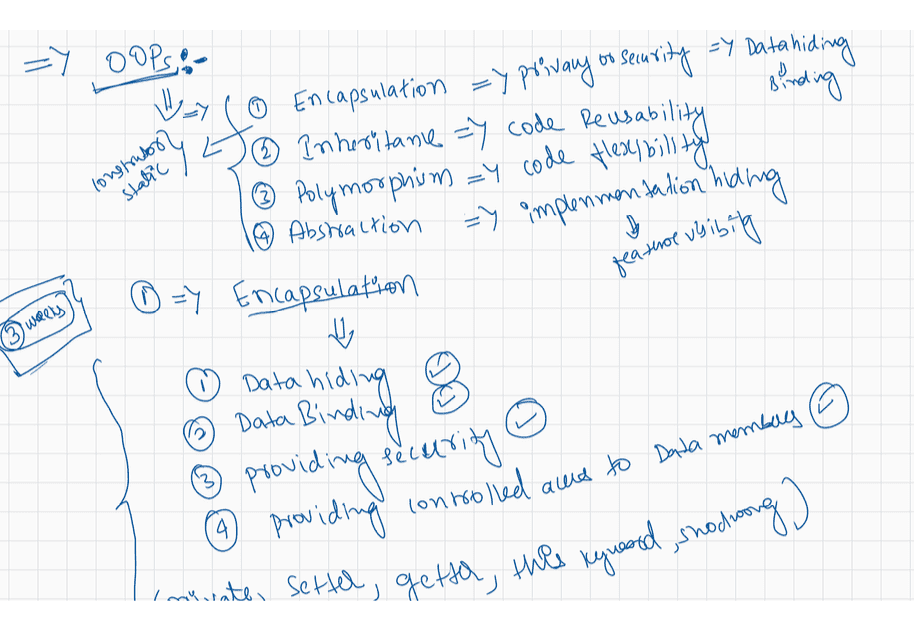 => OOPs:-
=> ① Encapsulation => privacy or security => Datahiding
Binding
② Inheritance => code Reusability
constructor
static
③ Polymorphism => code flexibility
④ Abstraction => implenmentation hiding
feature visibity
③ weeks
① => Encapsulation
① Data hiding ✓
② Data Binding ✓
③ providing security ✓
④ providing controlled access to Data members ✓
(private, setter, getter, this keyword,